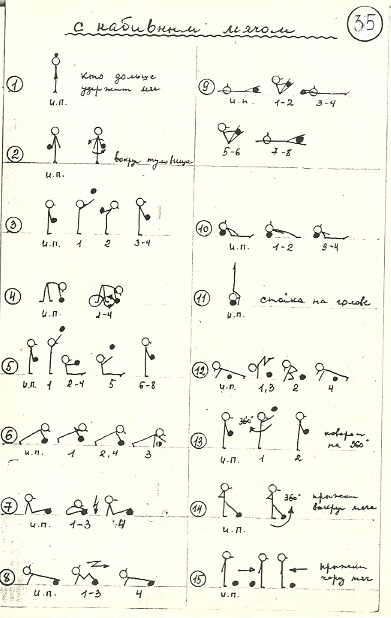 с набивным мячом
35
1
кто дольше
удержит мяч
и.п.
2
вокруг туловища
и.п.
3
и.п. 1 2 3-4
4
и.п. 2-4
5
и.п. 1 2-4 5 6-8
6
и.п. 1 2,4 3
7
и.п. 1-3 4
8
и.п. 1-3 4
9
и.п. 1-2 3-4
5-6 7-8
10
и.п. 1-2 3-4
11
стойка на голове
и.п.
12
и.п. 1,3 2 4
13
360°
поворот
на 360°
и.п. 1 2
14
360°
прыжки
вокруг мяча
и.п.
15
прыжки
через мяч
и.п.